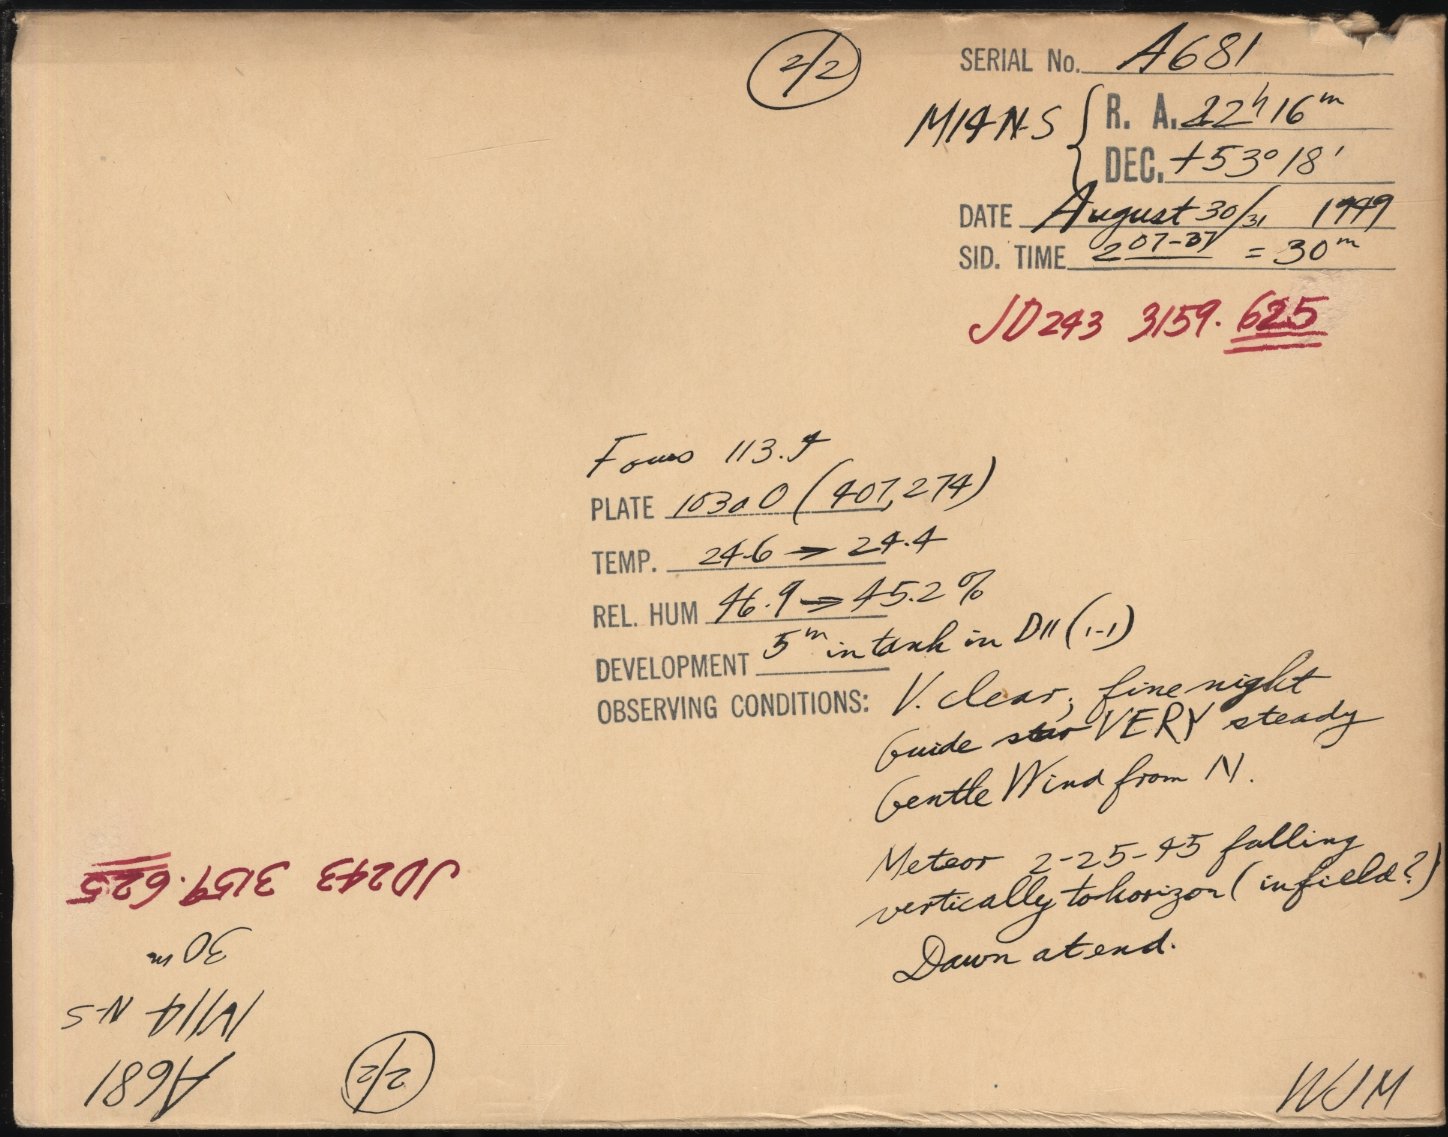 2/2
SERIAL No. A681
M14 N-S { R. A. 22h 16m
DEC. +53° 18'
DATE August 30/31 1949
SID. TIME 2 07-37 = 30m
JD243 3159.625
Focus 113.4
PLATE 103a O (407,274)
TEMP. 24.6 → 24.4
REL. HUM 46.9 → 45.2 %
DEVELOPMENT 5m in tank in D11 (1-1)
OBSERVING CONDITIONS: V. clear, fine night
Guide star VERY steady
Gentle Wind from N.
Meteor 2-25-45 falling
vertically to horizon (in field?)
Dawn at end.
WJM
2/2
A681
M14 N-S
30m
JD243 3159.625